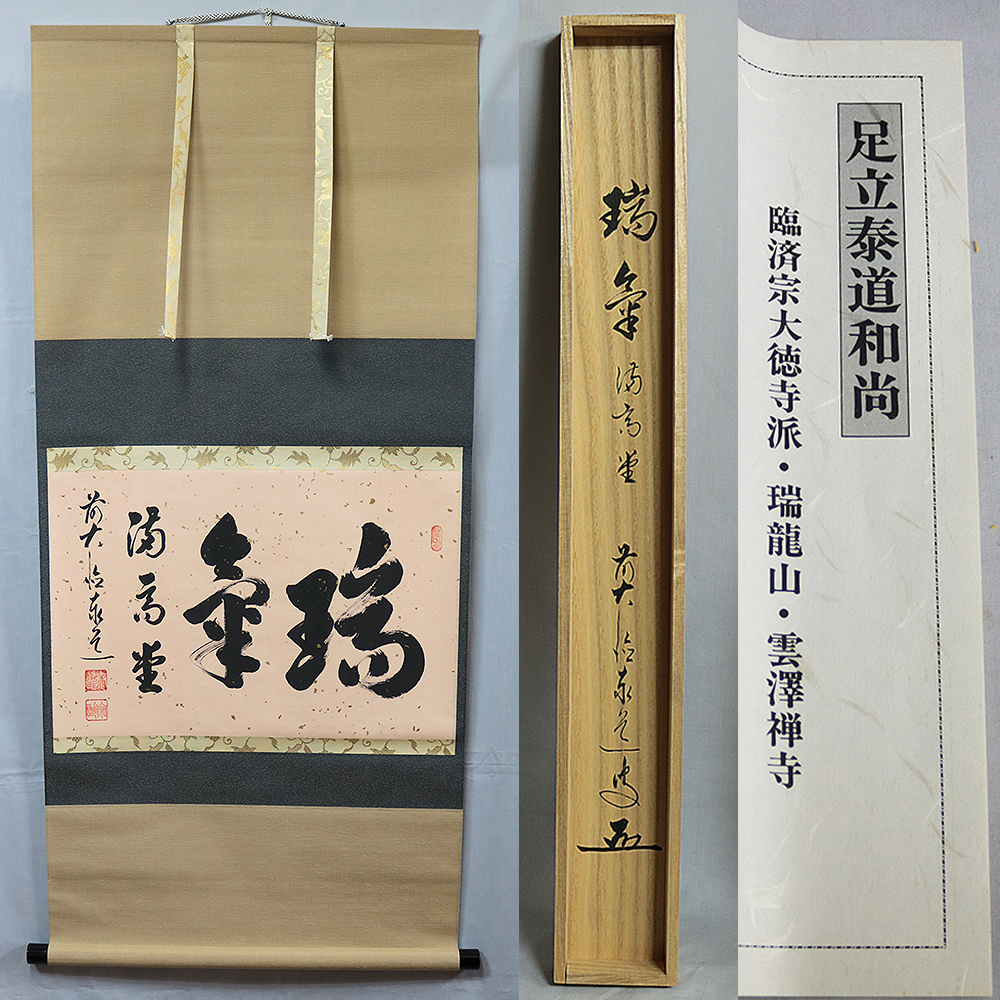 瑞氣
満高堂
前大徳泰道
瑞氣満高堂 前大徳泰道
足立泰道和尚
臨済宗大徳寺派・瑞龍山・雲澤禅寺